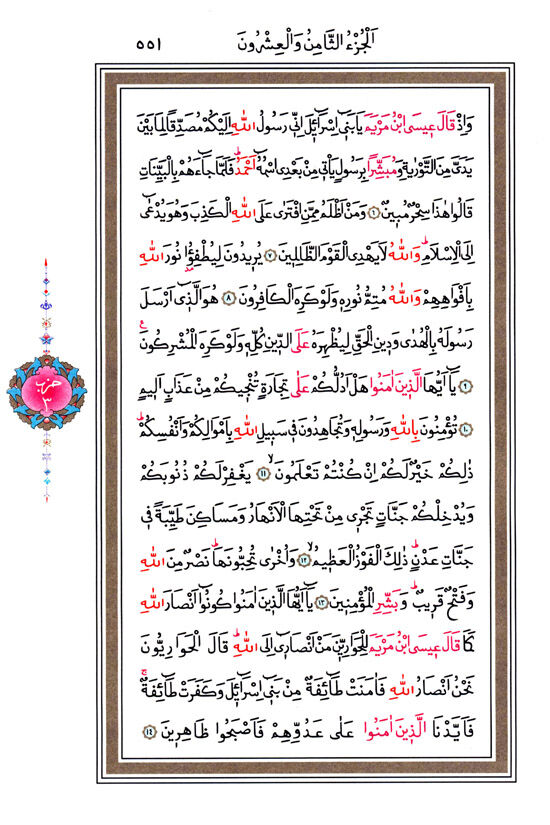 اَلْجُزْءُ الثَّامِنُ وَالْعِشْرُونَ
٥٥١
وَاِذْ قَالَ عٖيسَى ابْنُ مَرْيَمَ يَا بَنٖٓي اِسْرَٓائٖلَ اِنّٖي رَسُولُ اللّٰهِ اِلَيْكُمْ مُصَدِّقًا لِمَا بَيْنَ
يَدَيَّ مِنَ التَّوْرٰيةِ وَمُبَشِّرًا بِرَسُولٍ يَأْتٖي مِنْ بَعْدِي اسْمُهُٓ اَحْمَدُؕ فَلَمَّا جَٓاءَهُمْ بِالْبَيِّنَاتِ
قَالُوا هٰذَا سِحْرٌ مُبٖينٌ ﴿٦﴾ وَمَنْ اَظْلَمُ مِمَّنِ افْتَرٰى عَلَى اللّٰهِ الْكَذِبَ وَهُوَ يُدْعٰٓى
اِلَى الْاِسْلَامِؕ وَاللّٰهُ لَا يَهْدِي الْقَوْمَ الظَّالِمٖينَ ﴿٧﴾ يُرٖيدُونَ لِيُطْفِؤُ۫ا نُورَ اللّٰهِ
بِاَفْوَاهِهِمْؕ وَاللّٰهُ مُتِمُّ نُورِهٖ وَلَوْ كَرِهَ الْكَافِرُونَ ﴿٨﴾ هُوَ الَّذٖٓي اَرْسَلَ
رَسُولَهُ بِالْهُدٰى وَدٖينِ الْحَقِّ لِيُظْهِرَهُ عَلَى الدّٖينِ كُلِّهٖ وَلَوْ كَرِهَ الْمُشْرِكُونَ
﴿٩﴾ يَٓا اَيُّهَا الَّذٖينَ اٰمَنُوا هَلْ اَدُلُّكُمْ عَلٰى تِجَارَةٍ تُنْجٖيكُمْ مِنْ عَذَابٍ اَلٖيمٍ
﴿١٠﴾ تُؤْمِنُونَ بِاللّٰهِ وَرَسُولِهٖ وَتُجَاهِدُونَ فٖي سَبٖيلِ اللّٰهِ بِاَمْوَالِكُمْ وَاَنْفُسِكُمْؕ
ذٰلِكُمْ خَيْرٌ لَكُمْ اِنْ كُنْتُمْ تَعْلَمُونَۙ ﴿١١﴾ يَغْفِرْ لَكُمْ ذُنُوبَكُمْ
وَيُدْخِلْكُمْ جَنَّاتٍ تَجْرٖي مِنْ تَحْتِهَا الْاَنْهَارُ وَمَسَاكِنَ طَيِّبَةً فٖي
جَنَّاتِ عَدْنٍؕ ذٰلِكَ الْفَوْزُ الْعَظٖيمُۙ ﴿١٢﴾ وَاُخْرٰى تُحِبُّونَهَاؕ نَصْرٌ مِنَ اللّٰهِ
وَفَتْحٌ قَرٖيبٌؕ وَبَشِّرِ الْمُؤْمِنٖينَ ﴿١٣﴾ يَٓا اَيُّهَا الَّذٖينَ اٰمَنُوا كُونُٓوا اَنْصَارَ اللّٰهِ
كَمَا قَالَ عٖيسَى ابْنُ مَرْيَمَ لِلْحَوَارِيّٖنَ مَنْ اَنْصَارٖٓي اِلَى اللّٰهِؕ قَالَ الْحَوَارِيُّونَ
نَحْنُ اَنْصَارُ اللّٰهِ فَاٰمَنَتْ طَٓائِفَةٌ مِنْ بَنٖٓي اِسْرَٓائٖلَ وَكَفَرَتْ طَٓائِفَةٌۚ
فَاَيَّدْنَا الَّذٖينَ اٰمَنُوا عَلٰى عَدُوِّهِمْ فَاَصْبَحُوا ظَاهِرٖينَ ﴿١٤﴾
حزب
٣